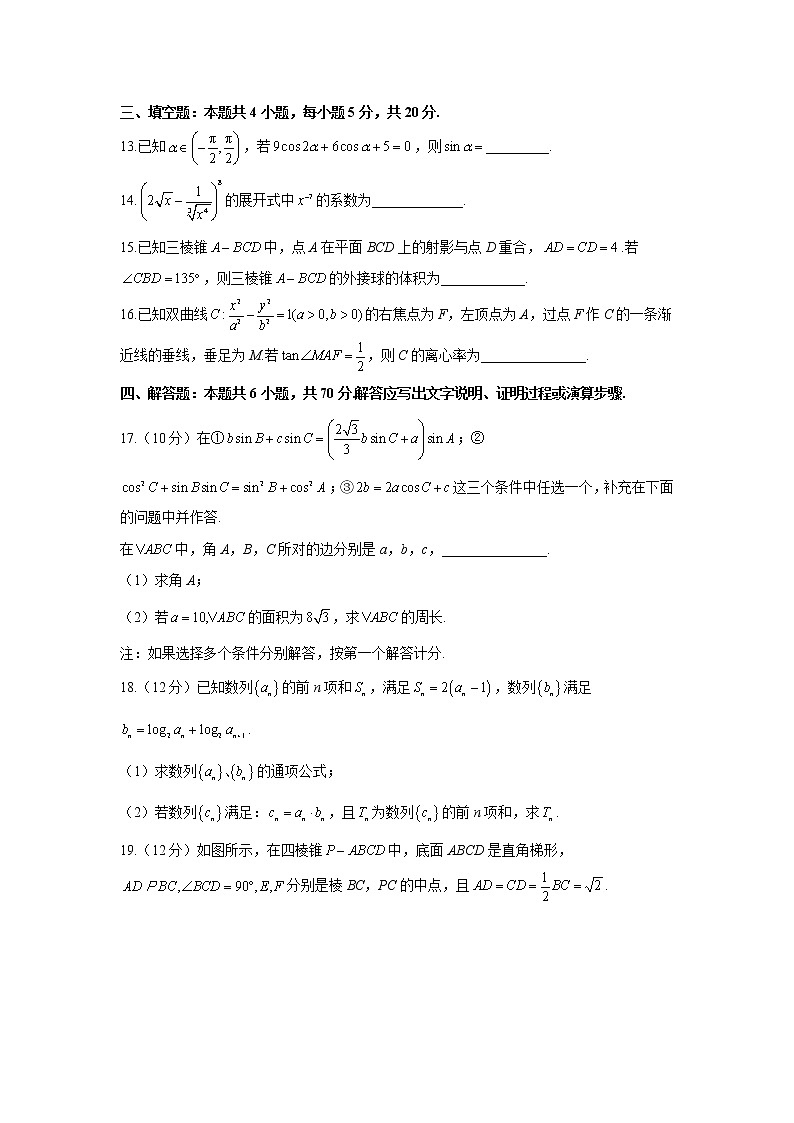 三、填空题：本题共 4 小题，每小题 5 分，共 20 分.
13.已知 α∈(−π/2, π/2)，若 9cos2α+6cosα+5=0，则 sinα=_________.
14. (2√x − 1/∛(x⁴))⁸ 的展开式中 x⁻⁷ 的系数为_____________.
15.已知三棱锥 A−BCD 中，点 A 在平面 BCD 上的射影与点 D 重合，AD=CD=4.若
∠CBD=135°，则三棱锥 A−BCD 的外接球的体积为____________.
16.已知双曲线 C: x²/a² − y²/b² = 1(a>0,b>0) 的右焦点为 F，左顶点为 A，过点 F 作 C 的一条渐
近线的垂线，垂足为 M.若 tan∠MAF=1/2，则 C 的离心率为_______________.
四、解答题：本题共 6 小题，共 70 分.解答应写出文字说明、证明过程或演算步骤.
17.（10 分）在① bsinB+csinC=(2√3/3 bsinC+a)sinA；②
cos²C+sinBsinC=sin²B+cos²A；③ 2b=2acosC+c 这三个条件中任选一个，补充在下面
的问题中并作答.
在∨ABC 中，角 A，B，C 所对的边分别是 a，b，c，_______________.
（1）求角 A；
（2）若 a=10,∨ABC 的面积为 8√3，求∨ABC 的周长.
注：如果选择多个条件分别解答，按第一个解答计分.
18.（12 分）已知数列{aₙ}的前 n 项和 Sₙ，满足 Sₙ=2(aₙ−1)，数列{bₙ}满足
bₙ=log₂aₙ+log₂aₙ₊₁.
（1）求数列{aₙ}、{bₙ}的通项公式；
（2）若数列{cₙ}满足：cₙ=aₙ·bₙ，且 Tₙ 为数列{cₙ}的前 n 项和，求 Tₙ.
19.（12 分）如图所示，在四棱锥 P−ABCD 中，底面 ABCD 是直角梯形，
AD P BC,∠BCD=90°,E,F 分别是棱 BC，PC 的中点，且 AD=CD=1/2BC=√2.